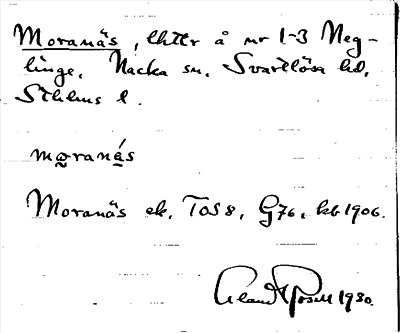 Moranäs, lhttr å nr 1-3 Neg-
linge, Nacka sn, Svartlösa hd,
Sthlms l.
moranás
Moranäs ek, TOS 8, G76, kb 1906.
1930.